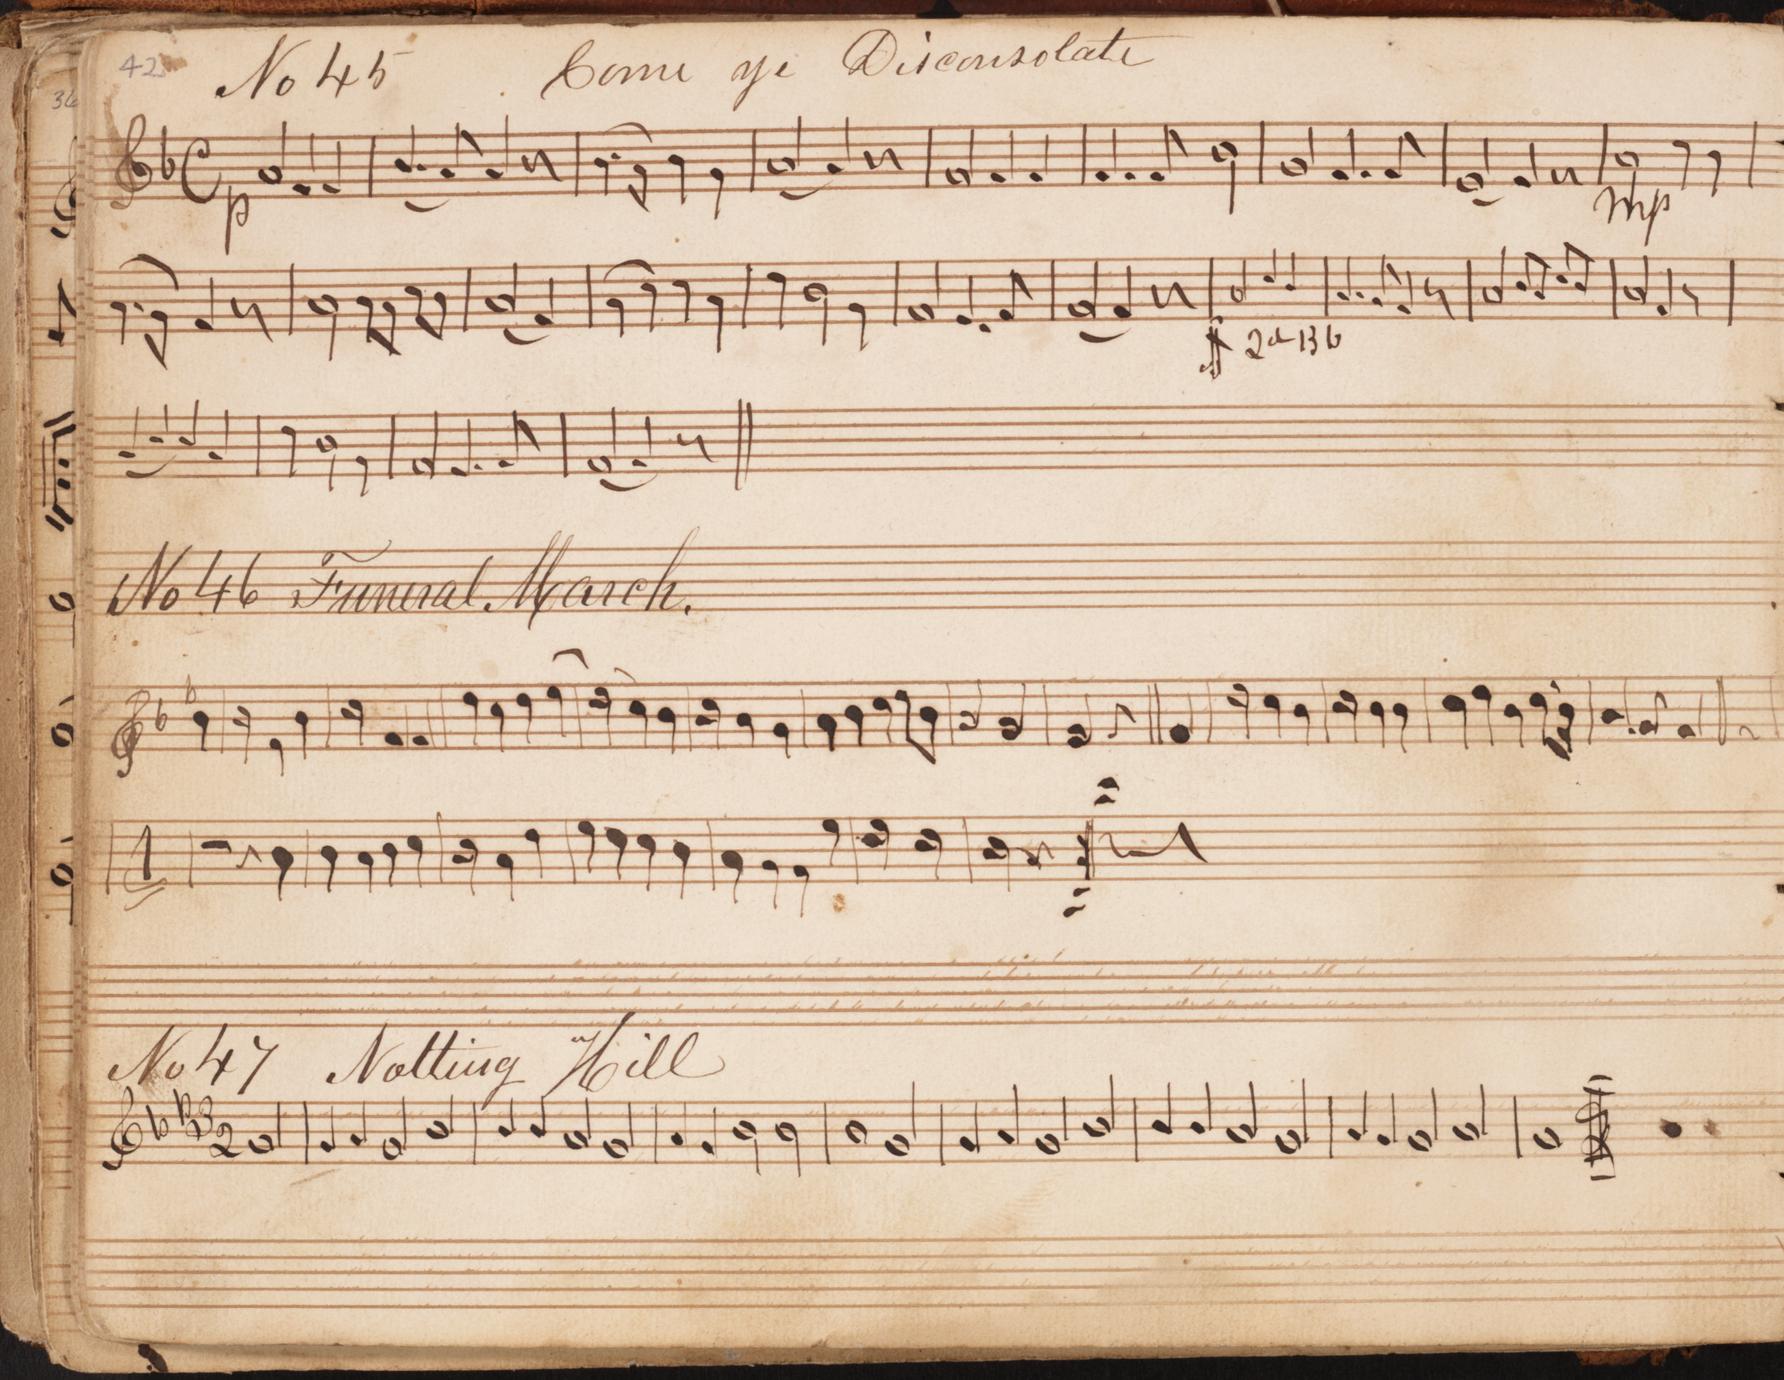 42
36
No 45 Come ye Disconsolate
p
mp
ff 2d 13 b
No 46 Funeral March.
1
No 47 Notting Hill
3
2